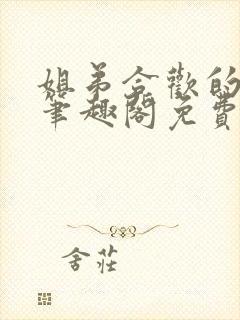 姐弟合歡的
筆趣閣免費
舍莊